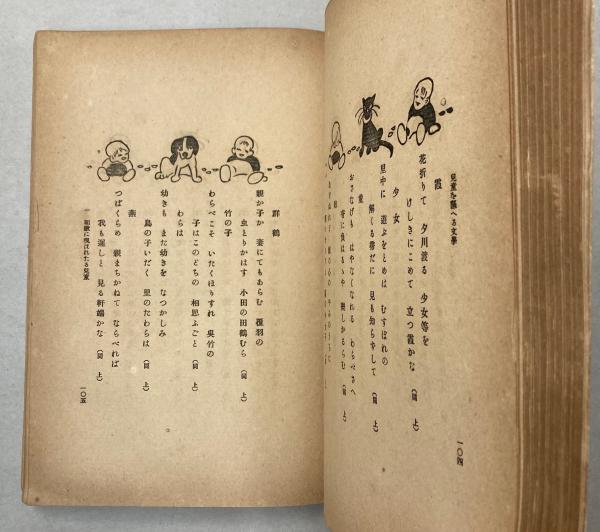 兒童を謳へる文學
霞
花折りて 夕川渡る 少女等を
けしきにこめて 立つ霞かな (同 上)
少女
里中に 遊ぶをとめは むすぼれの
解くる帶だに 見も知らやして (同 上)
童
おさなげも はやなくなれる わらべさへ
一〇四
群鶴
親か子か 妻にてもあらむ 覆羽の
虫とりかはす 小田の田鶴むら (同 上)
竹の子
わらべこそ いたくほりすれ 吳竹の
子はこのどちの 相思ふごと (同 上)
わらは
幼きも また幼きを なつかしみ
鳥の子いだく 里のたわらは (同 上)
燕
つばくらめ 親まちかねて ならべれば
我も遲しと 見る軒端かな (同 上)
一 和歌に現はれたる兒童
一〇五